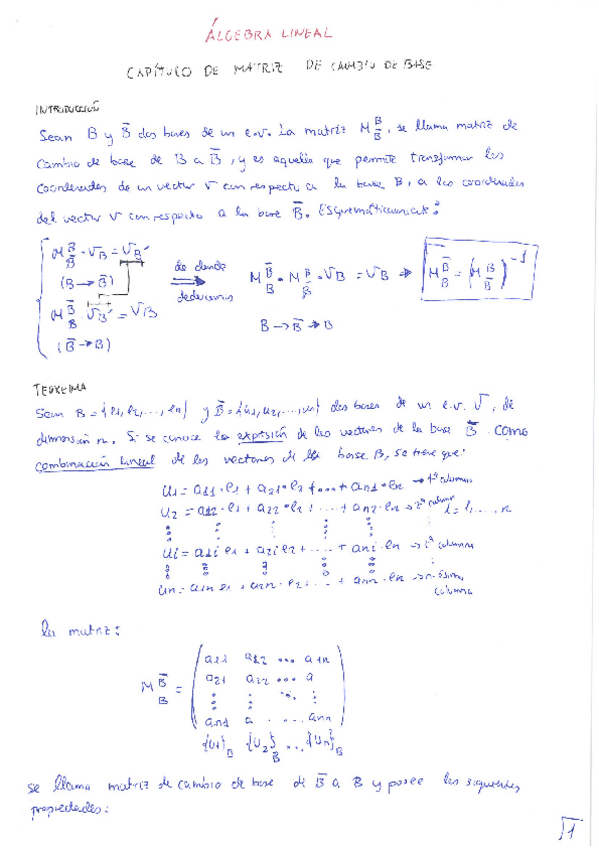 ÁLGEBRA LINEAL
CAPÍTULO DE MATRIZ DE CAMBIO DE BASE
INTRODUCCIÓN
Sean B y B̅ dos bases de un e.v. La matriz M B B̅, se llama matriz de
cambio de base de B a B̅, y es aquella que permite transformar las
coordenadas de un vector V con respecto a la base B, a las coordenadas
del vector V con respecto a la base B̅. Esquemáticamente:
M B B̅ · VB = VB'
(B → B̅)
M B̅ B · VB' = VB
(B̅ → B)
de donde
deducimos
M B̅ B · M B B̅ · VB = VB → M B̅ B = (M B B̅)^-1
B → B̅ → B
TEOREMA
Sean B = {e1, e2, ..., en} y B̅ = {u1, u2, ..., un} dos bases de un e.v. V, de
dimensión n. Si se conoce la expresión de los vectores de la base B̅ como
combinación lineal de los vectores de la base B, se tiene que:
u1 = a11·e1 + a21·e2 + .... + an1·en → 1ª columna
u2 = a12·e1 + a22·e2 + .... + an2·en → 2ª column i = 1, ..., n
ui = a1i e1 + a2i e2 + .... + ani·en → iª columna
un = a1n e1 + a2n·e2 + ... + ann·en → n-ésima
columna
la matriz:
M B̅ B = ( a11 a12 ... a1n
a21 a22 ... a
an1 a . ... ann )
{u1}B {u2}B ... {un}B
se llama matriz de cambio de base de B̅ a B y posee las siguientes
propiedades:
1